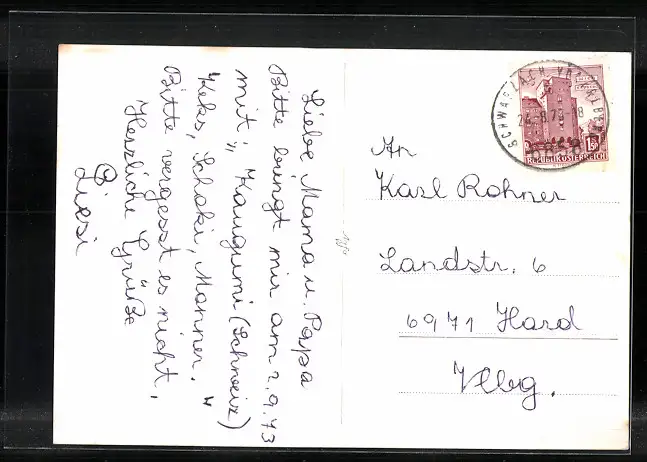 Liebe Mama u. Papa
Bitte bringt mir am 2.9.73
mit; „Kaugumi (Schweiz)
Keks, Schoki, Manner. "
Bitte vergesst es nicht,
Herzliche Grüße
Liesi
SCHWARZACH VORARLBERG
6858
REPUBLIK ÖSTERREICH
An
Karl Rohner
Landstr. 6
6971 Hard
Vlbg.